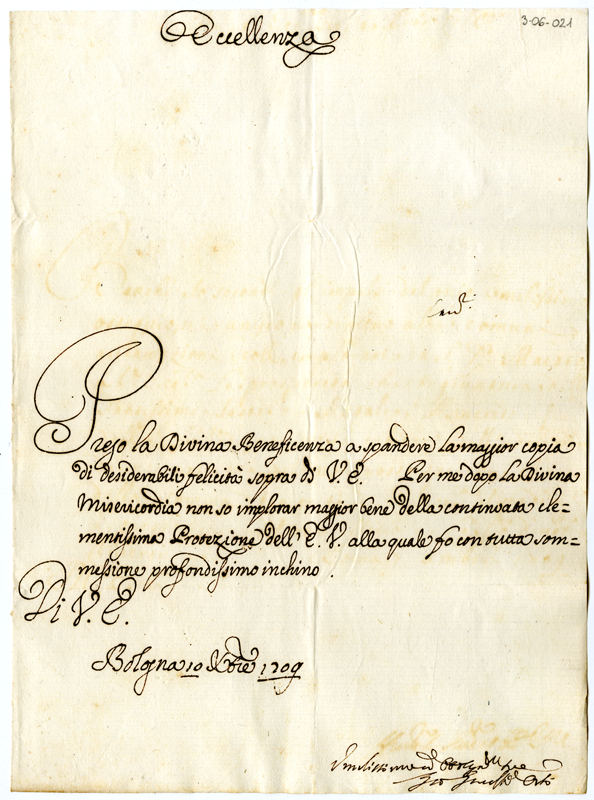 3-06-021
Eccellenza
Prego la Divina Beneficenza a spandere la maggior copia
di desiderabili felicità sopra di V. E. Per me dopo la Divina
Misericordia non so implorar maggior bene della continuata cle=
mentissima Protezione dell' E. V. alla quale fo con tutta som=
messione profondissimo inchino.
Di V. E.
Bologna 10 Xbre 1709